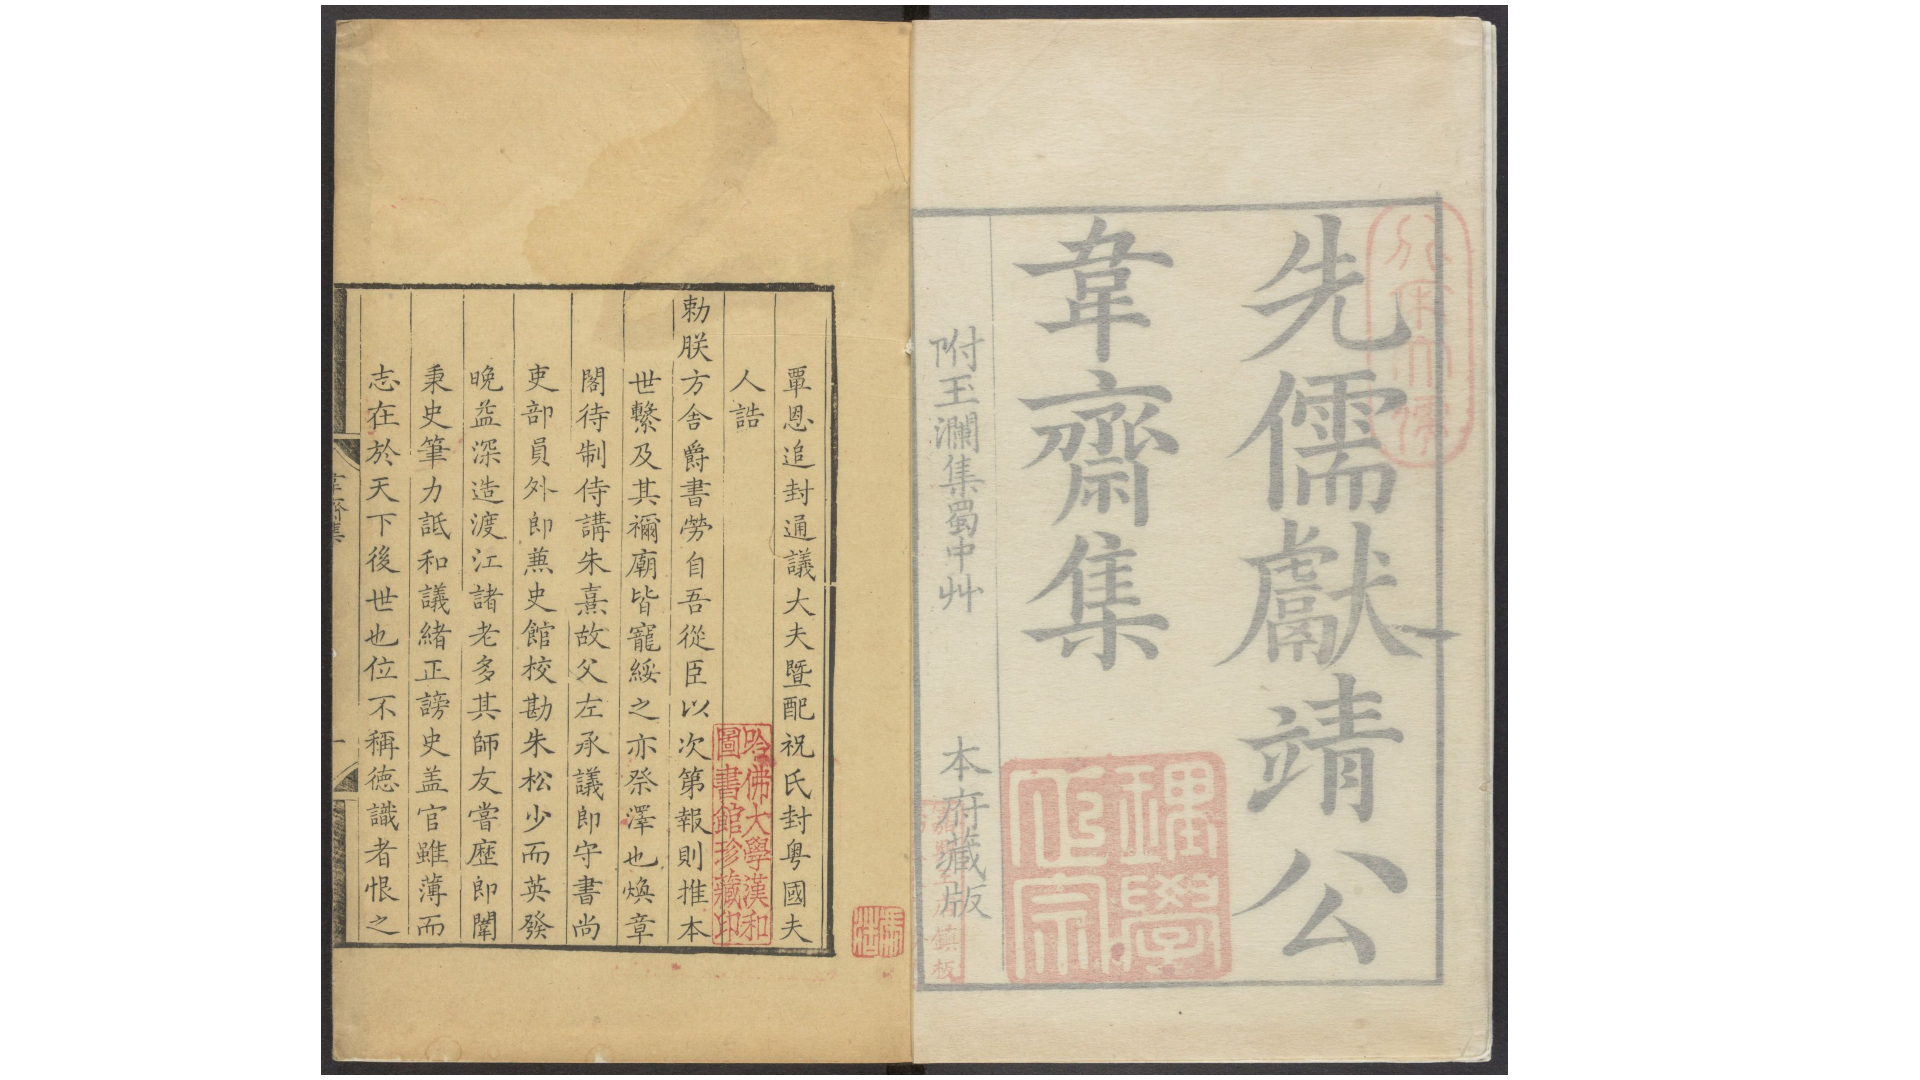 先儒獻靖公
韋齋集
附玉瀾集蜀中艸 本府藏版
理學
正宗
覃恩追封通議大夫暨配祝氏封粤國夫
人誥
勑朕方舍爵書勞自吾從臣以次第報則推本
世繫及其禰廟皆寵綏之亦祭澤也煥章
閣待制侍講朱熹故父左承議郎守書尚
吏部員外郎蕪史館校勘朱松少而英發
晚益深造渡江諸老多其師友嘗歷郎闈
秉史筆力詆和議緒正謗史盖官雖薄而
志在於天下後世也位不稱德識者恨之
哈佛大學漢和
圖書館珍藏印
韋齋集
一